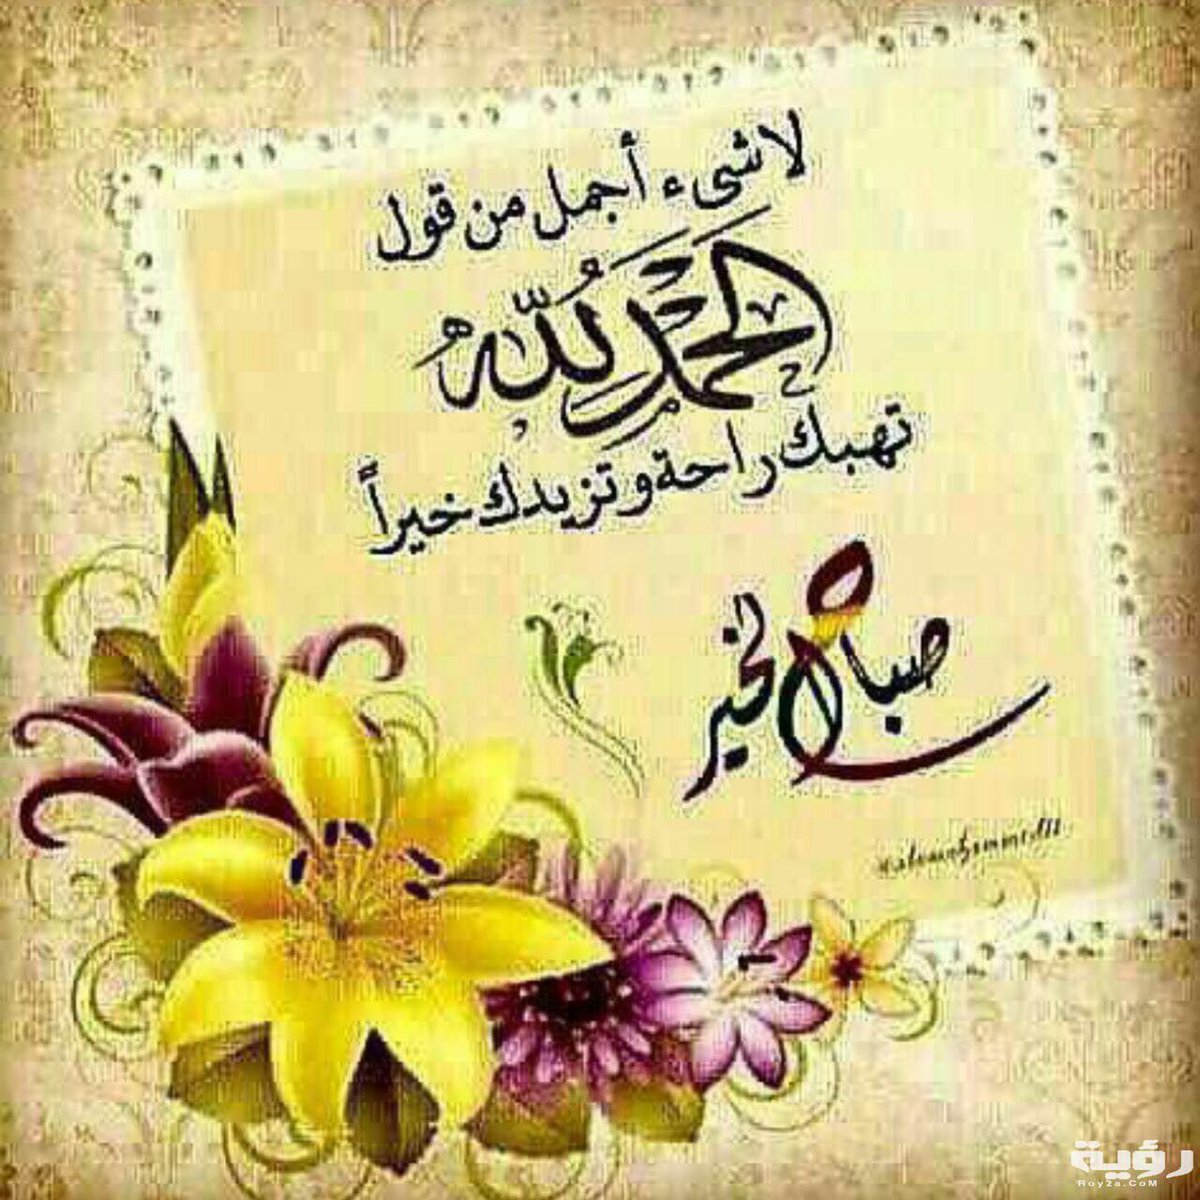 لا شىء أجمل من قول
الحَمْدُ لِلّٰهِ
تهبك راحة وتزيدك خيراً
صباح الخير
رؤية
Roy2a.CoM